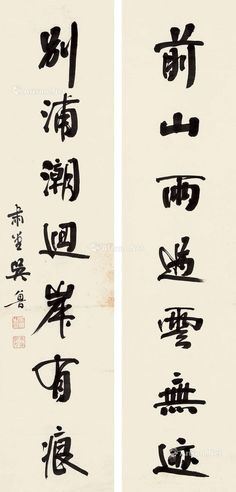 前山雨過雲無迹
別浦潮迴岸有痕
肅堂吳魯